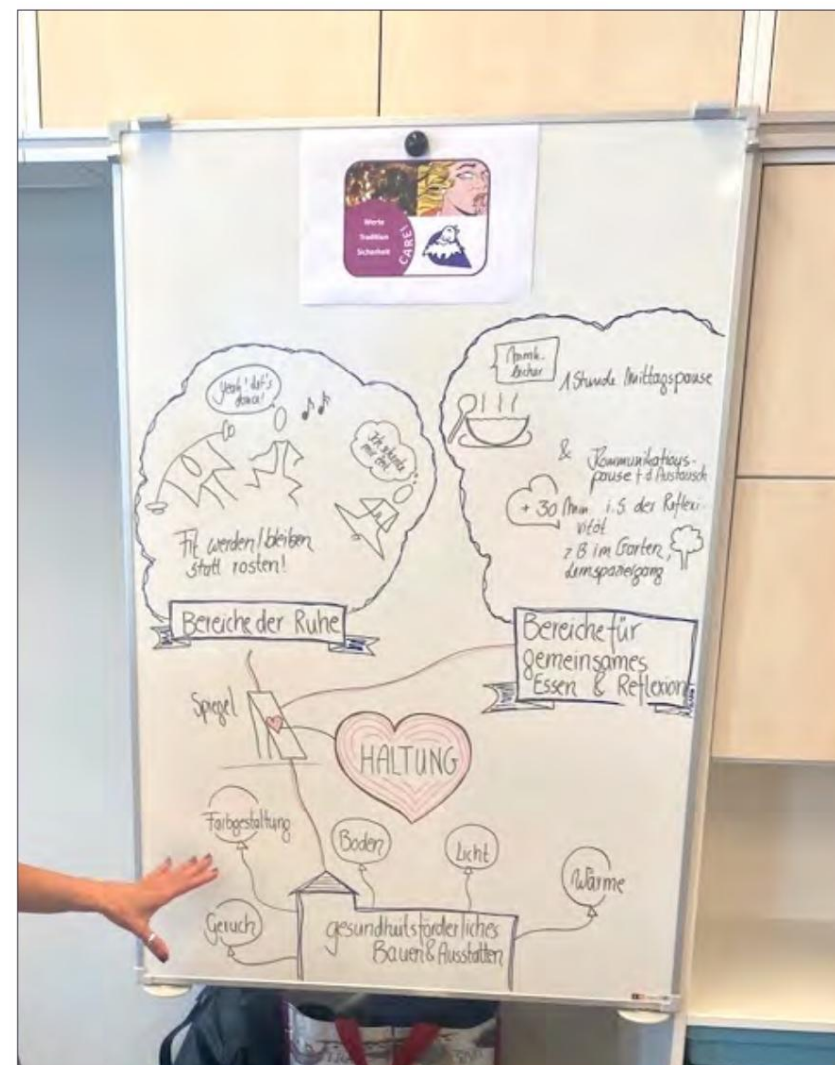 Werte
Tradition
Sicherheit
CARE!
Yeah! Let's
dance!
Ich
mir
Fit werden/bleiben
statt rosten!
Bereiche der Ruhe
lecker
1 Stunde Mittagspause
& Kommunikations-
pause + d Austausch
+ 30 Min i.S. der Reflexi-
vität
z B im Garten,
Lernspaziergang
Bereiche für
gemeinsames
Essen & Reflexion
Spiegel
HALTUNG
Farbgestaltung
Boden
Licht
Wärme
Geruch
gesundheitsförderliches
Bauen & Ausstatten